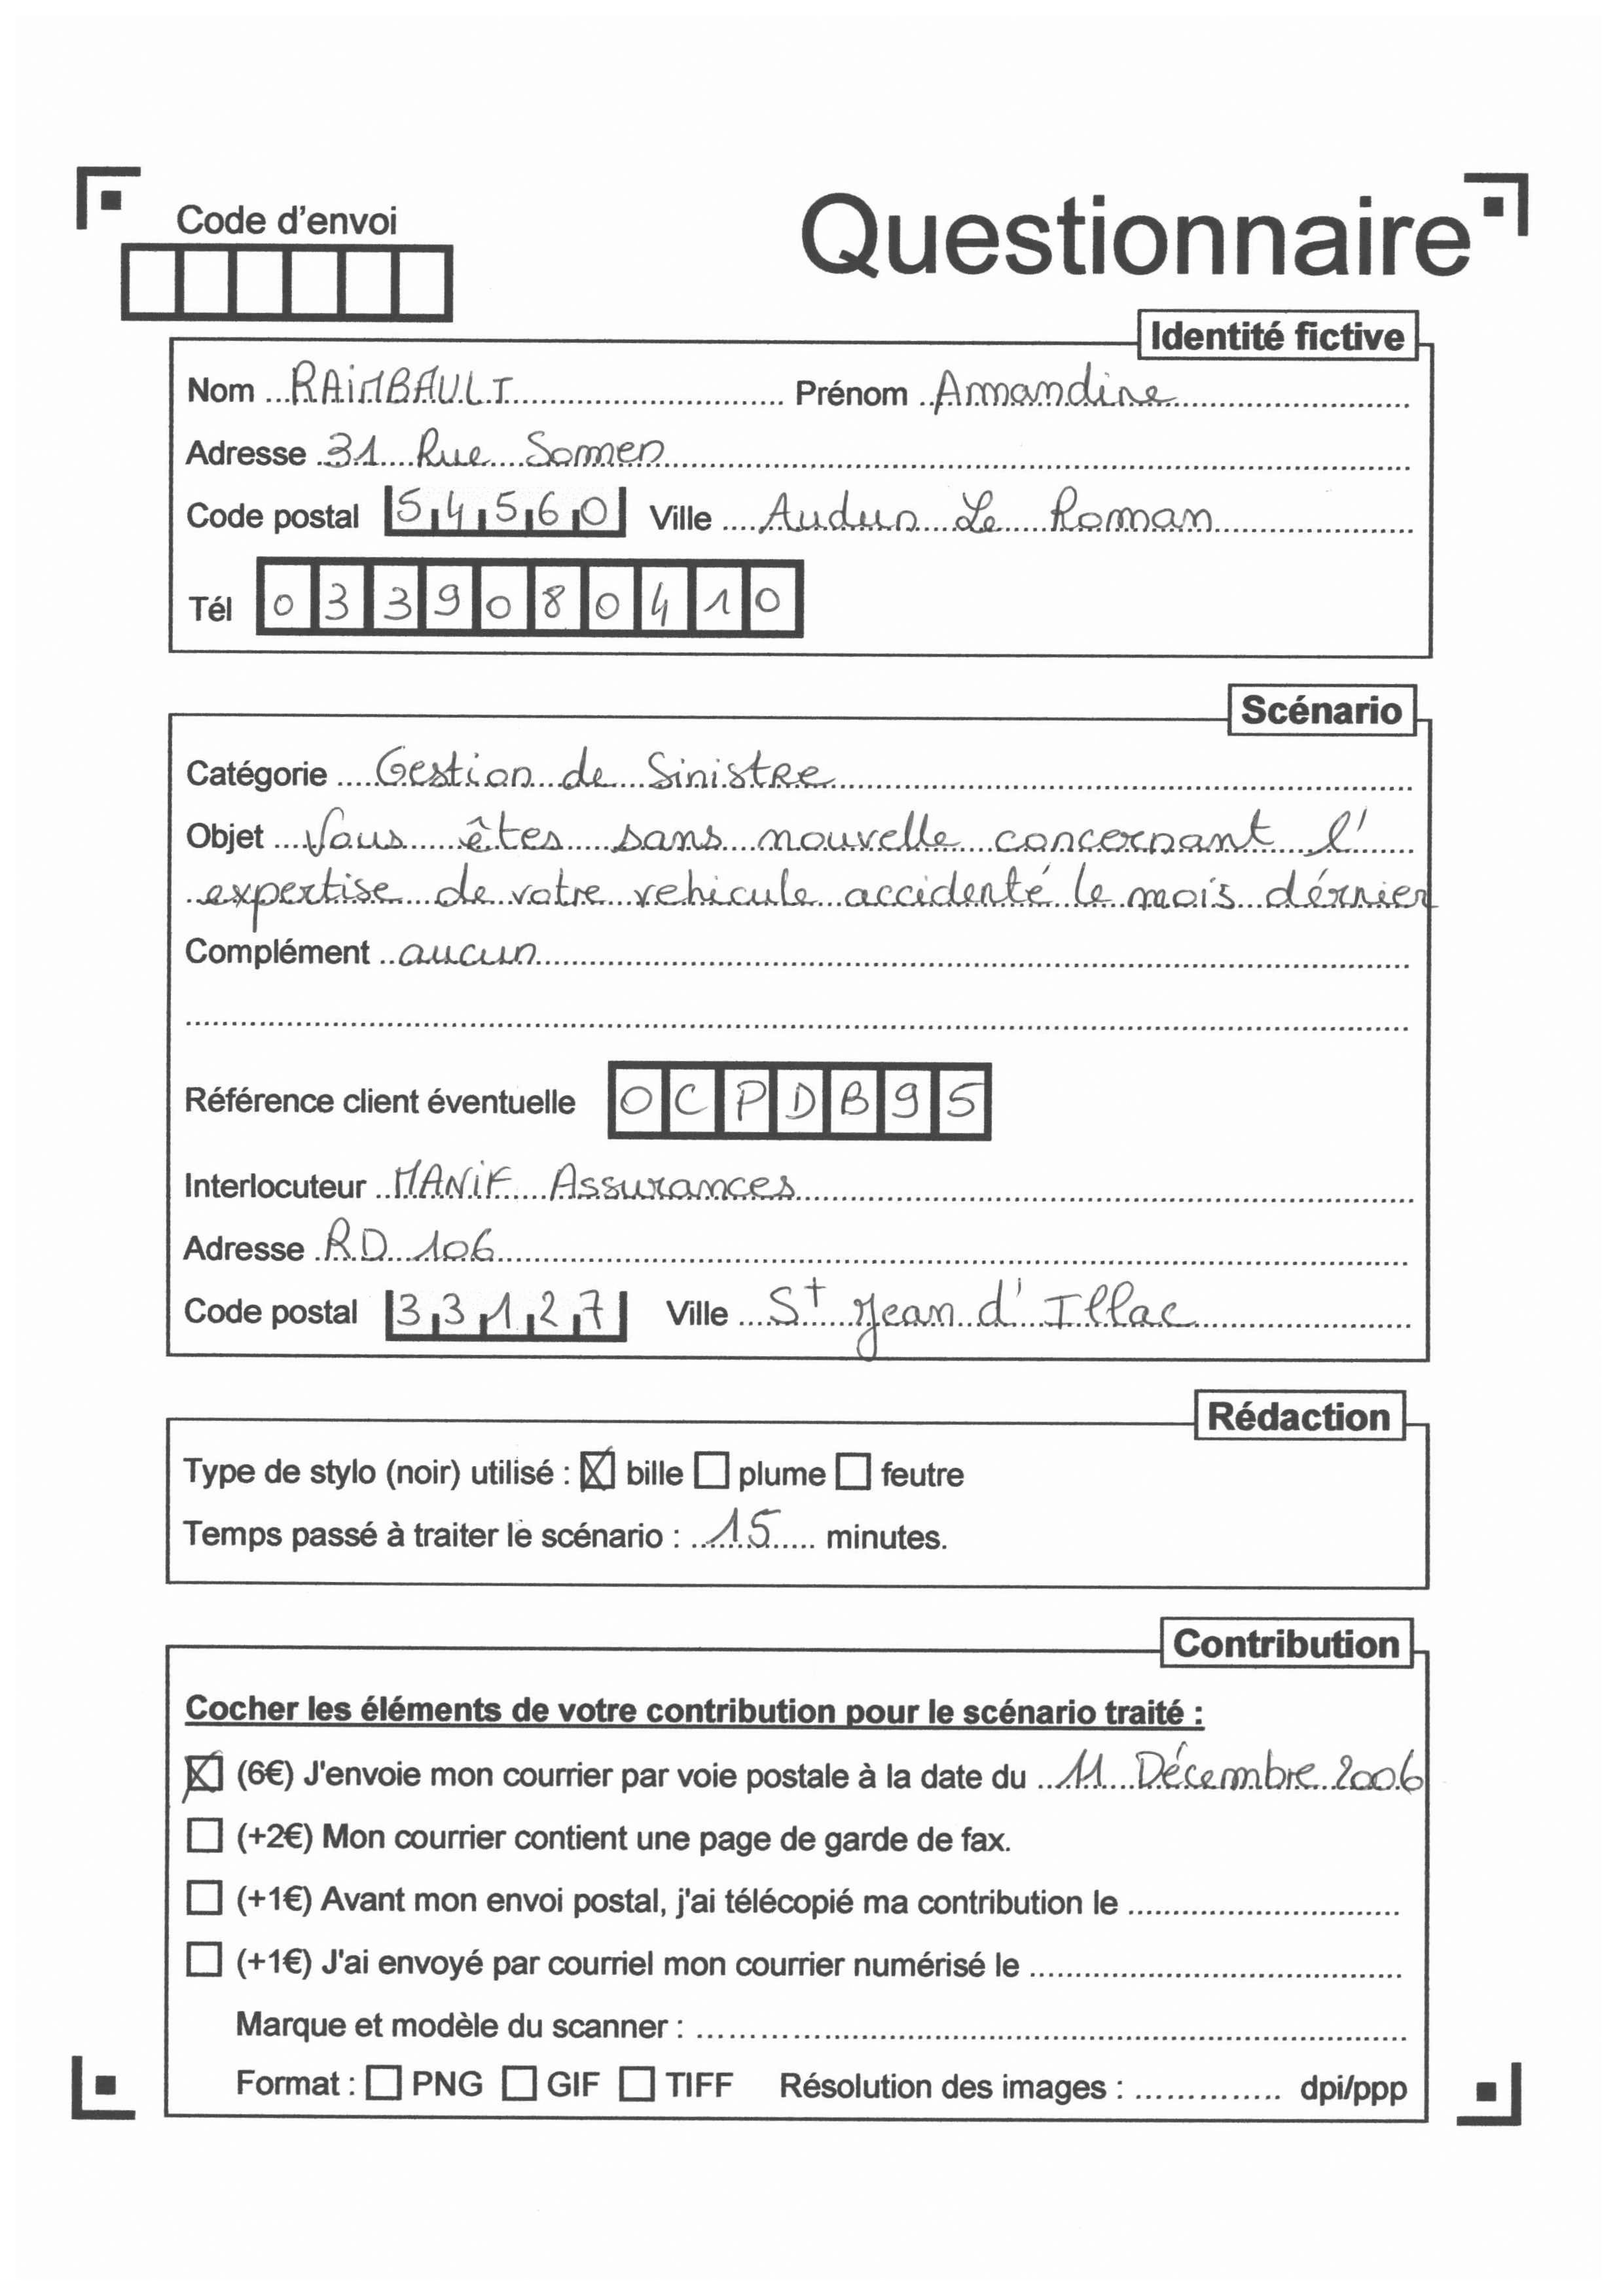 Code d'envoi
Questionnaire
Identité fictive
Nom RAIMBAULT Prénom Amandine
Adresse 31 Rue Somen
Code postal 54560 Ville Audun Le Roman
Tél 0339080410
Scénario
Catégorie Gestion de Sinistre
Objet Vous êtes sans nouvelle concernant l'
expertise de votre vehicule accidenté le mois dérnier
Complément aucun
Référence client éventuelle OCPDB95
Interlocuteur MANIF Assurances
Adresse RD 106
Code postal 33127 Ville St Jean d'Illac
Rédaction
Type de stylo (noir) utilisé : ☒ bille ☐ plume ☐ feutre
Temps passé à traiter le scénario : 15 minutes.
Contribution
Cocher les éléments de votre contribution pour le scénario traité :
☒ (6€) J'envoie mon courrier par voie postale à la date du 11 Décembre 2006
☐ (+2€) Mon courrier contient une page de garde de fax.
☐ (+1€) Avant mon envoi postal, j'ai télécopié ma contribution le
☐ (+1€) J'ai envoyé par courriel mon courrier numérisé le
Marque et modèle du scanner :
Format : ☐ PNG ☐ GIF ☐ TIFF Résolution des images : dpi/ppp